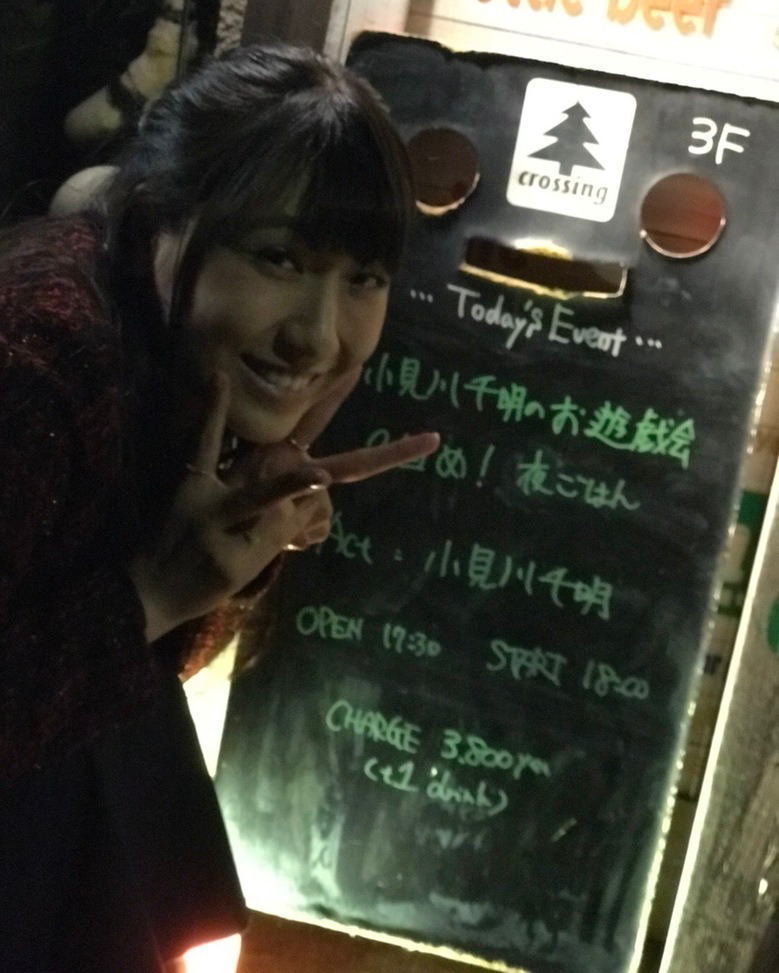 beer
3F
crossing
... Today's Event ...
小見川千明のお遊戯会
め! 夜ごはん
Act : 小見川千明
OPEN 17:30 START 18:00
CHARGE 3,800yen
(+1 drink)